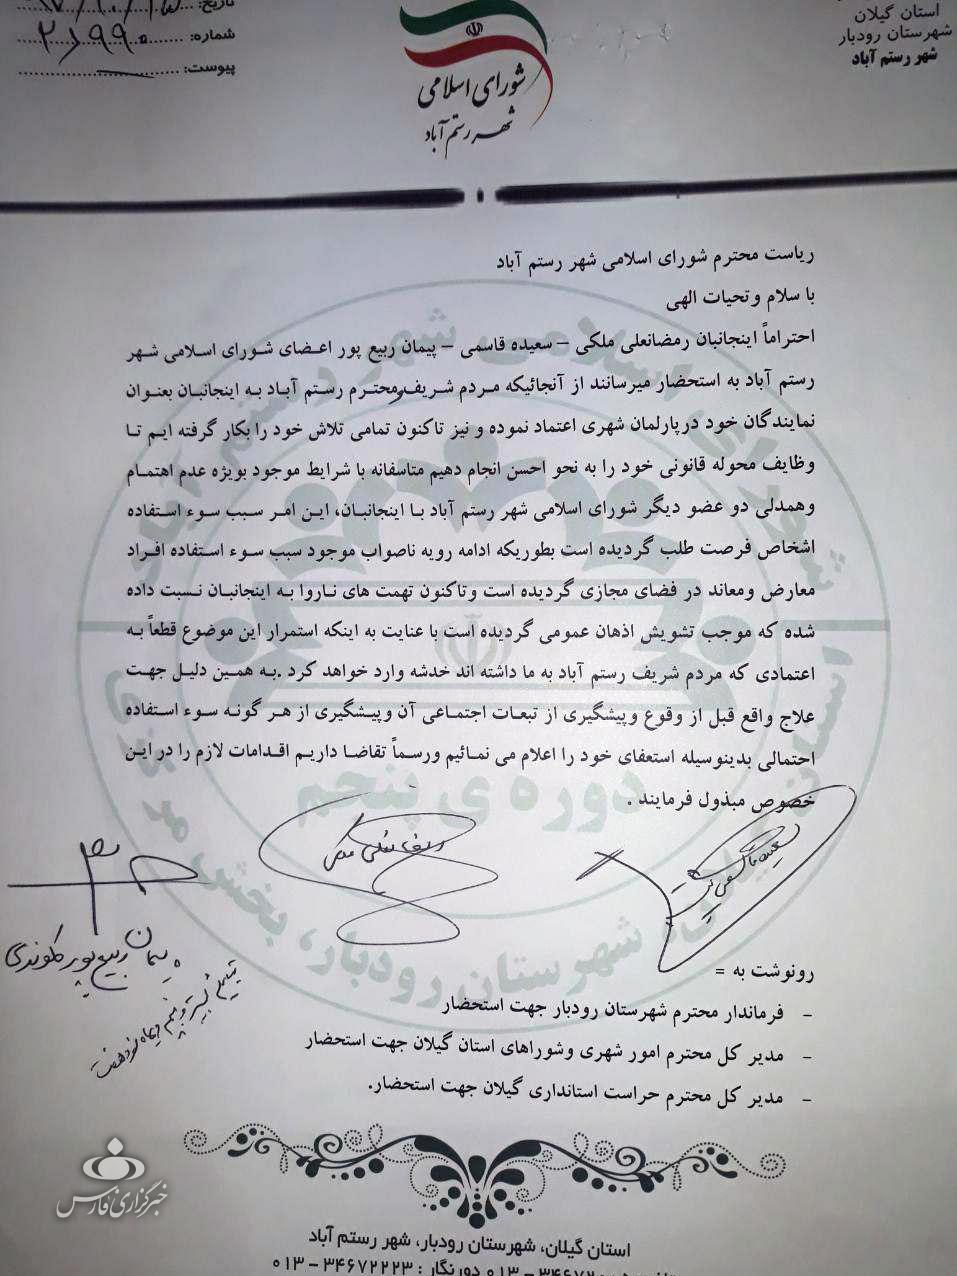 استان گیلان
شهرستان رودبار
شهر رستم آباد
شورای اسلامی
شهر رستم آباد
تاریخ:
شماره:
پیوست:
ریاست محترم شورای اسلامی شهر رستم آباد
با سلام وتحیات الهی
احتراماً اینجانبان رمضانعلی ملکی – سعیده قاسمی – پیمان ربیع پور اعضای شورای اسلامی شهر
رستم آباد به استحضار میرسانند از آنجائیکه مردم شریف ومحترم رستم آباد به اینجانبان بعنوان
نمایندگان خود درپارلمان شهری اعتماد نموده و نیز تاکنون تمامی تلاش خود را بکار گرفته ایم تا
وظایف محوله قانونی خود را به نحو احسن انجام دهیم متاسفانه با شرایط موجود بویژه عدم اهتمام
وهمدلی دو عضو دیگر شورای اسلامی شهر رستم آباد با اینجانبان، این امر سبب سوء استفاده
اشخاص فرصت طلب گردیده است بطوریکه ادامه رویه ناصواب موجود سبب سوء استفاده افراد
معارض ومعاند در فضای مجازی گردیده است وتاکنون تهمت های ناروا به اینجانبان نسبت داده
شده که موجب تشویش اذهان عمومی گردیده است با عنایت به اینکه استمرار این موضوع قطعاً به
اعتمادی که مردم شریف رستم آباد به ما داشته اند خدشه وارد خواهد کرد .به همین دلیل جهت
علاج واقع قبل از وقوع وپیشگیری از تبعات اجتماعی آن وپیشگیری از هر گونه سوء استفاده
احتمالی بدینوسیله استعفای خود را اعلام می نمائیم ورسماً تقاضا داریم اقدامات لازم را در این
خصوص مبذول فرمایند .
دوره ی پنجم
سعیده قاسمی
رمضانعلی ملکی
پیمان ربیع پور
رونوشت به =
- فرماندار محترم شهرستان رودبار جهت استحضار
- مدیر کل محترم امور شهری وشوراهای استان گیلان جهت استحضار
- مدیر کل محترم حراست استانداری گیلان جهت استحضار.
خبرگزاری فارس
استان گیلان، شهرستان رودبار، شهر رستم آباد
دورنگار : ۳۴۶۷۲۲۲۳ - ۰۱۳